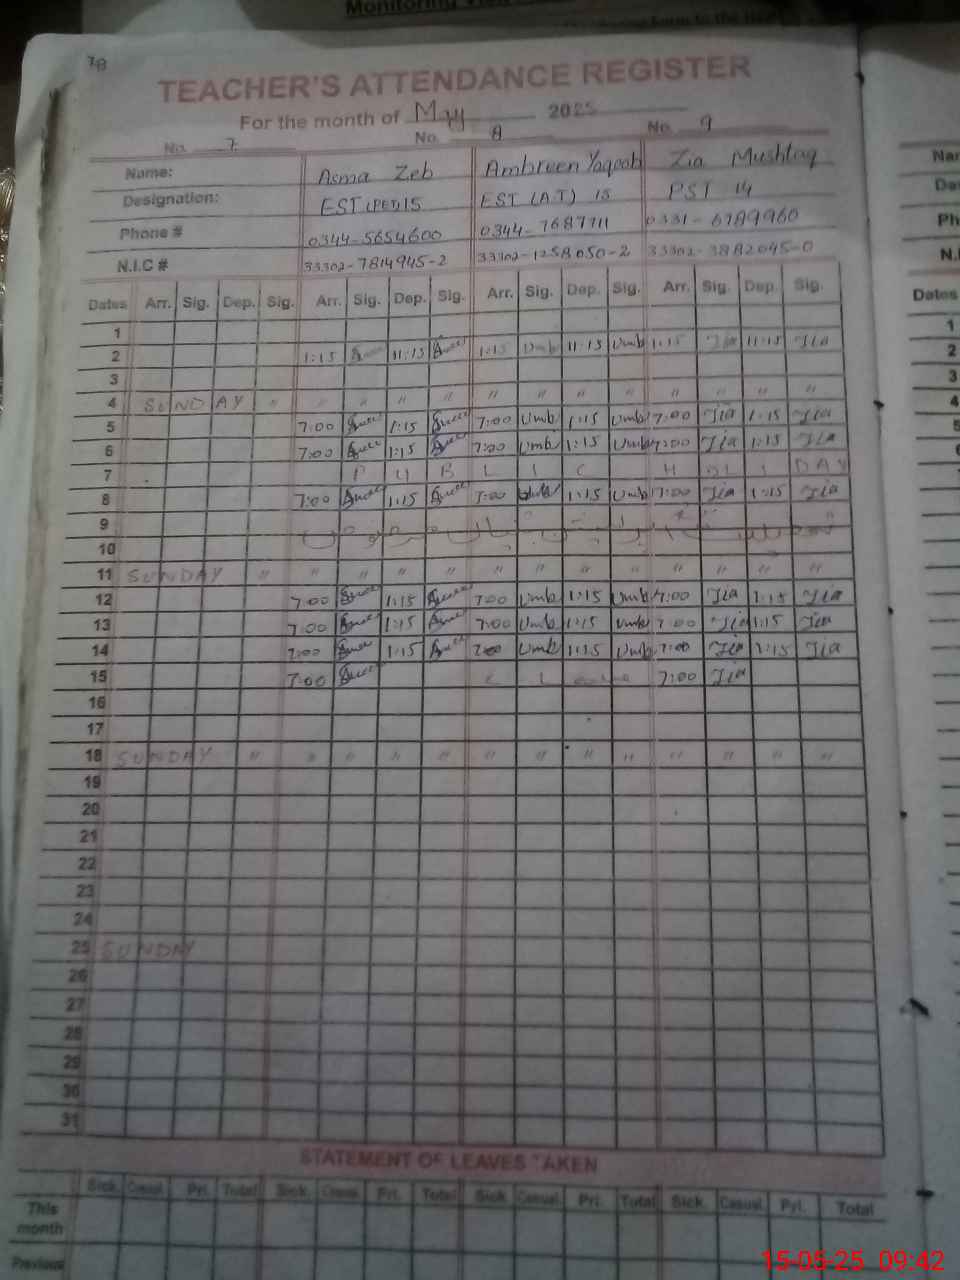 Monitoring
78
TEACHER'S ATTENDANCE REGISTER
For the month of May 2025
No. 7 No. 8 No. 9
Name: Asma Zeb Ambreen Yaqoob Zia Mushtaq
Designation: EST (PET) 15 EST (AT) 15 PST 14
Phone # 0344-5654600 0344-7687711 0331-6789960
N.I.C # 33302-7814945-2 33302-1258050-2 33302-3882045-0
Dates Arr. Sig. Dep. Sig. Arr. Sig. Dep. Sig. Arr. Sig. Dep. Sig. Arr. Sig. Dep. Sig.
1
2 1:15 11:15 1:15 Umb 11:15 Umb 1:15 Zia 11:15 Zia
3
4 SUNDAY " " " " " " " " " " " " "
5 7:00 1:15 7:00 Umb 1:15 Umb 7:00 Zia 1:15 Zia
6 7:00 1:15 7:00 Umb 1:15 Umb 7:00 Zia 1:15 Zia
7 PUBLIC HOLIDAY
8 7:00 1:15 7:00 Umb 1:15 Umb 7:00 Zia 1:15 Zia
9
10
11 SUNDAY " " " " " " " " " " " " "
12 7:00 1:15 7:00 Umb 1:15 Umb 7:00 Zia 1:15 Zia
13 7:00 1:15 7:00 Umb 1:15 Umb 7:00 Zia 1:15 Zia
14 7:00 1:15 7:00 Umb 1:15 Umb 7:00 Zia 1:15 Zia
15 7:00 C Leave 7:00 Zia
16
17
18 SUNDAY " " " " " " " " " " " " "
19
20
21
22
23
24
25 SUNDAY
26
27
28
29
30
31
STATEMENT OF LEAVES TAKEN
Sick. Casual. Pri. Total Sick. Casual. Pri. Total Sick Casual. Pri. Total Sick. Casual. Pri. Total
This month
Previous
Dates
1
2
3
4
15-05-25 09:42